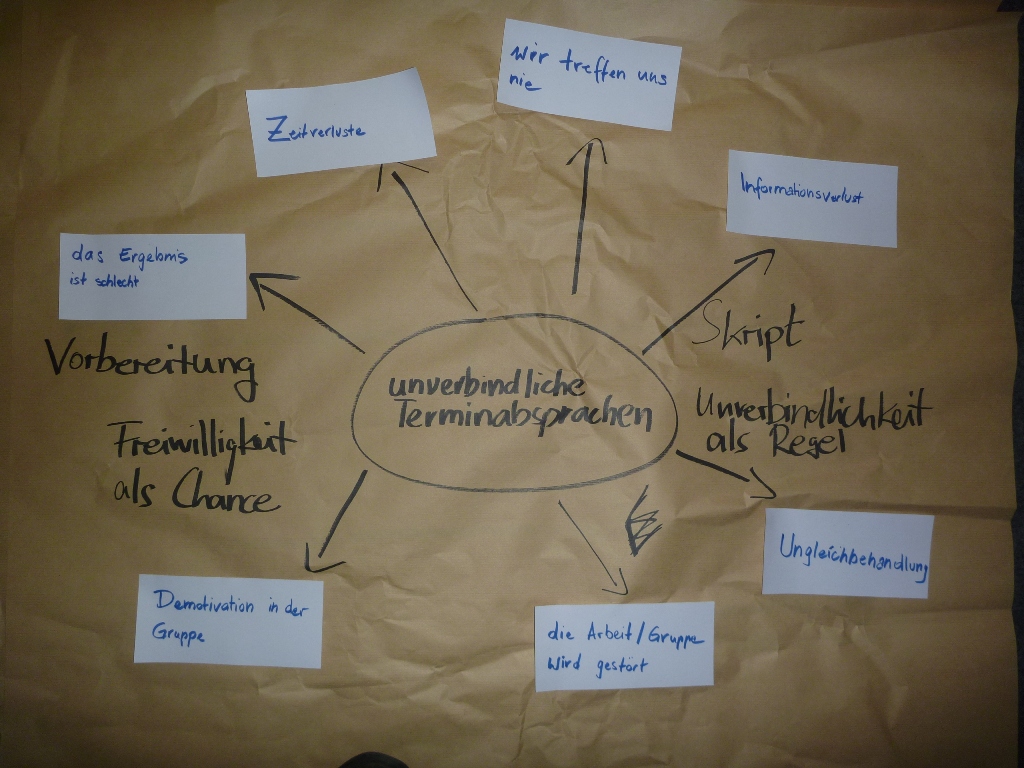 wir treffen uns
nie
Zeitverluste
Informationsverlust
das Ergebnis
ist schlecht
Skript
Vorbereitung
unverbindliche
Terminabsprachen
Unverbindlichkeit
als Regel
Freiwilligkeit
als Chance
Ungleichbehandlung
Demotivation in der
Gruppe
die Arbeit/Gruppe
wird gestört